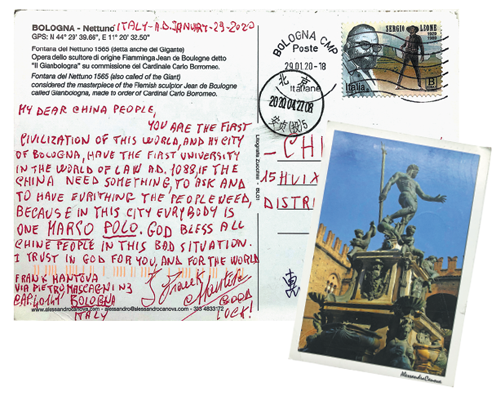 BOLOGNA - Nettuno
ITALY - A.D. JANUARY - 29 - 2020
GPS: N 44° 29' 39.66", E 11° 20' 32.50"
Fontana del Nettuno 1565 (detta anche del Gigante)
Opera dello scultore di origine Fiamminga Jean de Boulogne detto
"Il Gianbologna" su commissione del Cardinale Carlo Borromeo.
Fontana del Nettuno 1565 (also called of the Giant)
considered the masterpiece of the Flemish sculptor Jean de Boulogne
called Gianbologna, made to order of Cardinal Carlo Borromeo.
MY DEAR CHINA PEOPLE,
YOU ARE THE FIRST
CIVILIZATION OF THIS WORLD, AND MY CITY
OF BOLOGNA, HAVE THE FIRST UNIVERSITY
IN THE WORLD OF LAW AD. 1088, IF THE
CHINA NEED SOMETHING, TO ASK AND
TO HAVE EVRITHING THE PEOPLE NEED,
BECAUSE IN THIS CITY EVRYBODY IS
ONE MARCO POLO. GOD BLESS ALL
CHINE PEOPLE IN THIS BAD SITUATION.
I TRUST IN GOD FOR YOU, AND FOR THE WORLD
FRANK MANTOVA
VIA PIETRO MASCAGNI N3
CAP. 40141 BOLOGNA
ITALY
GOOD
LOCK!
www.alessandrocanova.com - alessandro@alessandrocanova.com - 393 4833172
BOLOGNA CMP
Poste
29.01.20-18
Italiane
北京
2020.04.27.08
SERGIO LEONE
Italia
B
- CHI
15 HUIX
DISTRI
AlessandroCanova